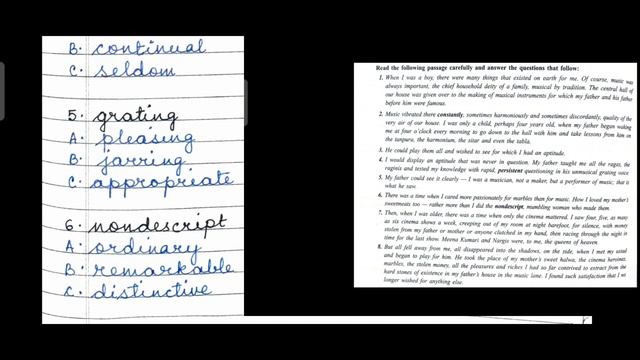 B. continual
C. seldom
5. grating
A. pleasing
B. jarring
C. appropriate
6. nondescript
A. ordinary
B. remarkable
C. distinctive
Read the following passage carefully and answer the questions that follow:
1. When I was a boy, there were many things that existed on earth for me. Of course, music was
always important, the chief household deity of a family, musical by tradition. The central hall of
our house was given over to the making of musical instruments for which my father and his father
before him were famous.
2. Music vibrated there constantly, sometimes harmoniously and sometimes discordantly, quality of the
very air of our house. I was only a child, perhaps four years old, when my father began waking
me at four o'clock every morning to go down to the hall with him and take lessons from him in
the tanpura, the harmonium, the sitar and even the tabla.
3. He could play them all and wished to see for which I had an aptitude.
4. I would display an aptitude that was never in question. My father taught me all the ragas, the
raginis and tested my knowledge with rapid, persistent questioning in his unmusical grating voice
5. My father could see it clearly — I was a musician, not a maker, but a performer of music; that is
what he saw.
6. There was a time when I cared more passionately for marbles than for music. How I loved my mother's
sweetmeats too — rather more than I did the nondescript, mumbling woman who made them.
7. Then, when I was older, there was a time when only the cinema mattered. I saw four, five, as many
as six cinema shows a week, creeping out of my room at night barefoot, for silence, with money
stolen from my father or mother or anyone clutched in my hand, then racing through the night in
time for the last show. Meena Kumari and Nargis were, to me, the queens of heaven.
8. But all fell away from me, all disappeared into the shadows, on the side, when I met my ustad
and began to play for him. He took the place of my mother's sweet halwa, the cinema heroines,
marbles, the stolen money, all the pleasures and riches I had so far contrived to extract from the
hard stones of existence in my father's house in the music lane. I found such satisfaction that I no
longer wished for anything else.